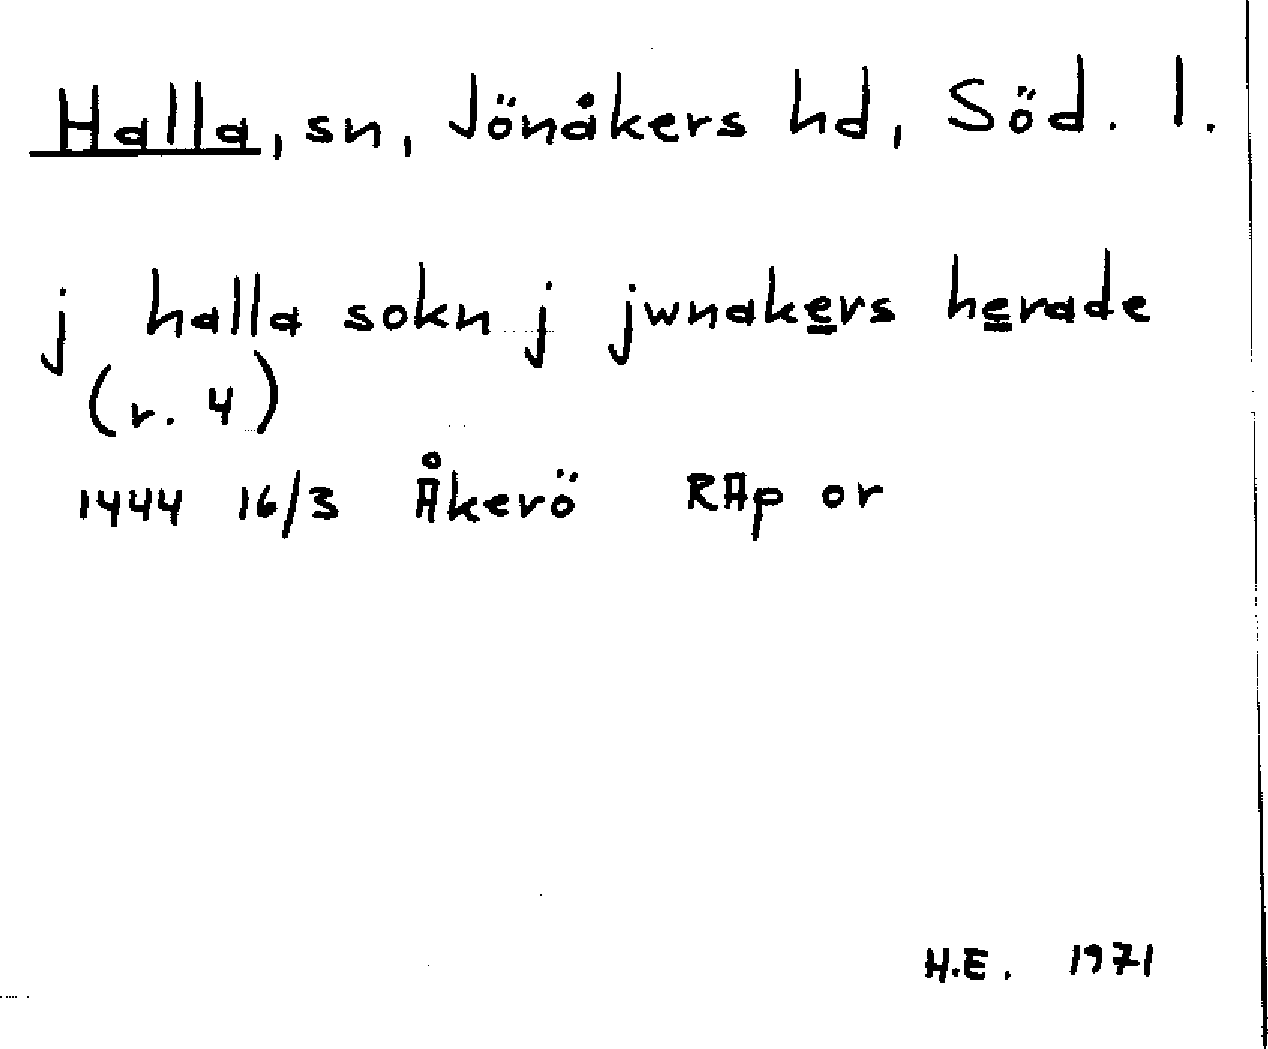 Halla, sn, Jönåkers hd, Söd. l.
j halla sokn j jwnakers herade
(r. 4)
1444 16/3 Åkerö RAp or
H.E. 1971